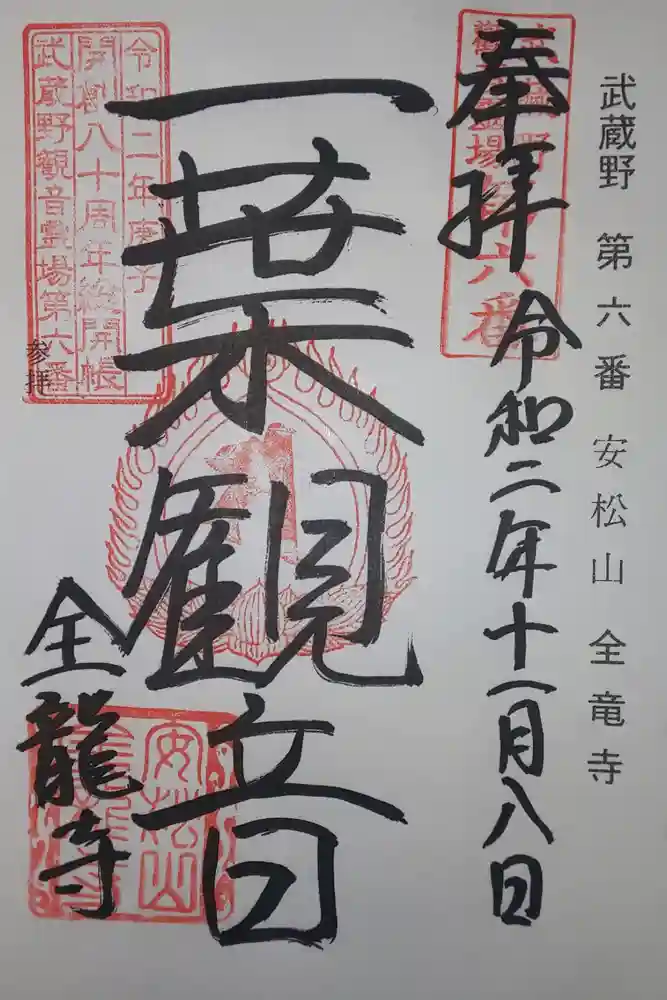 武蔵野 第六番 安松山 全竜寺
奉拝 令和二年十一月八日
武蔵野
観音霊場第六番
一葉観音
令和二年庚子
開創八十周年総開帳
武蔵野観音霊場第六番
参拝
全龍寺
安松山